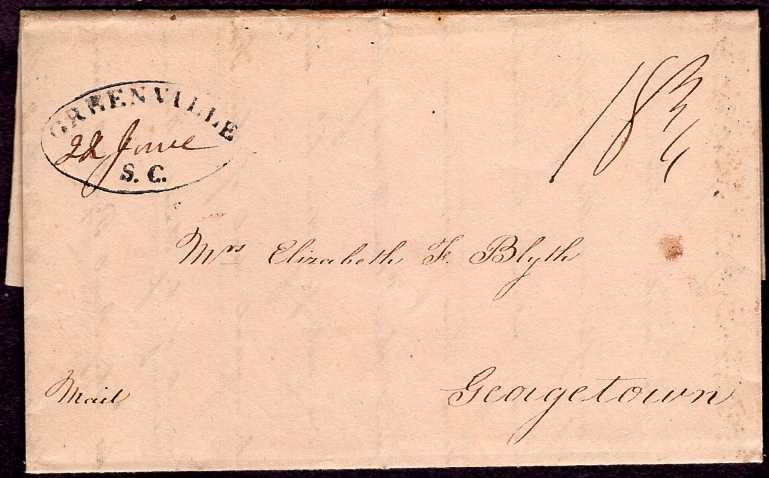 GREENVILLE
22 June
S. C.
18 3/4
Mrs Elizabeth F. Blyth
Mail
Georgetown